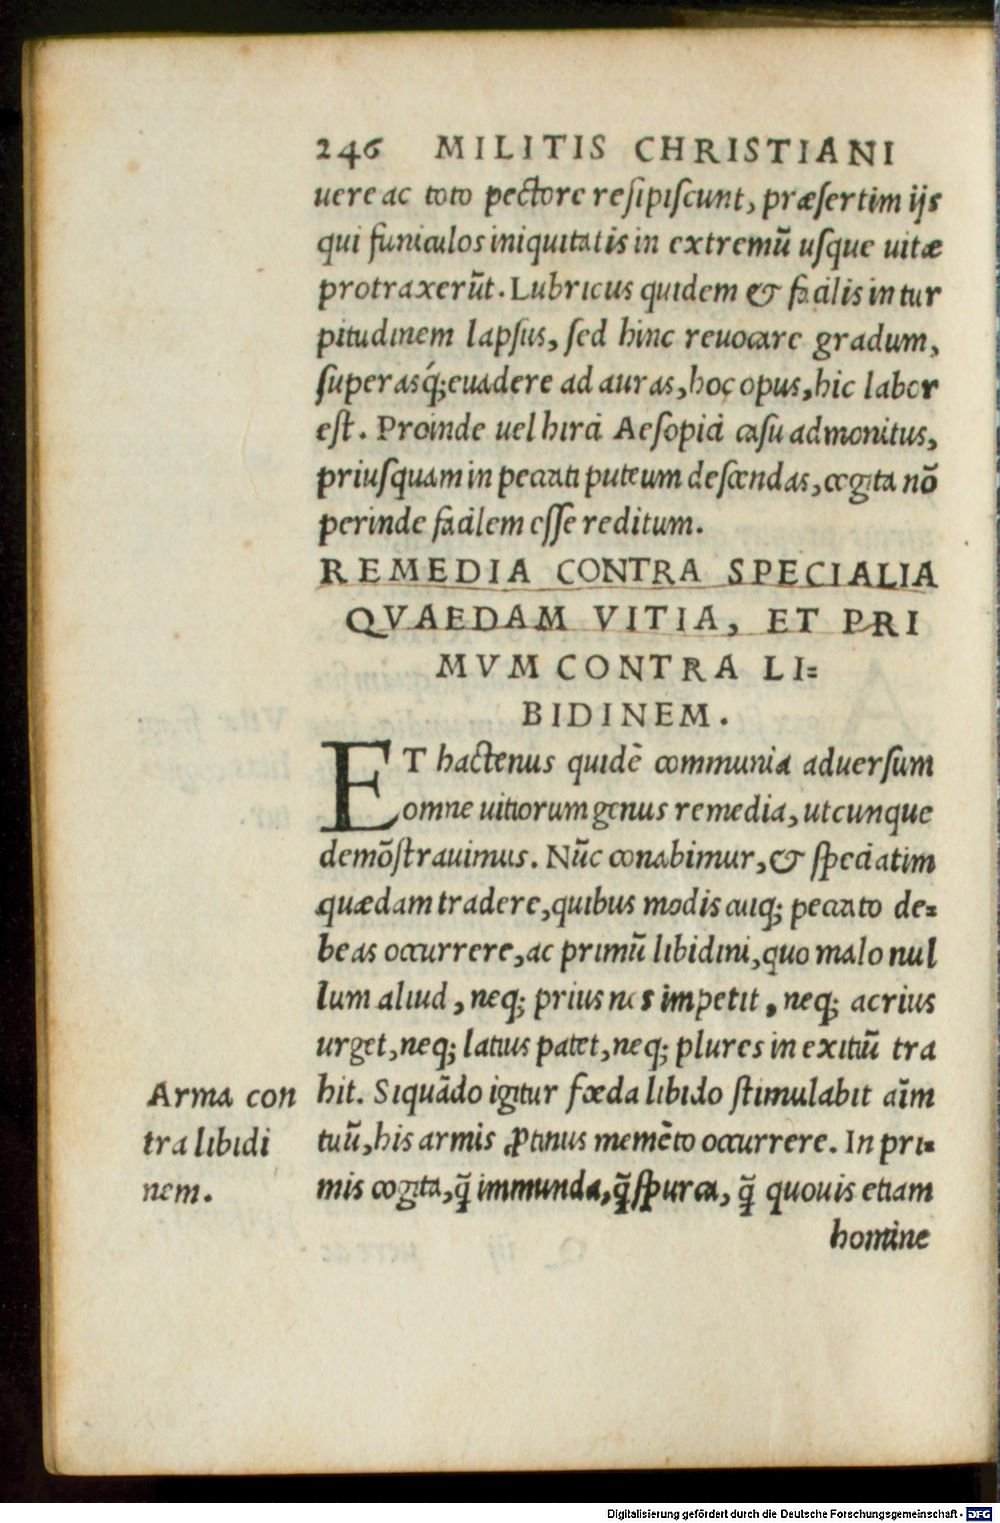 246 MILITIS CHRISTIANI
uere ac toto pectore resipiscunt, præsertim ijs
qui funiculos iniquitatis in extremũ usque uitæ
protraxerũt. Lubricus quidem & facilis in tur
pitudinem lapsus, sed hinc reuocare gradum,
superasq́; euadere ad auras, hoc opus, hic labor
est. Proinde uel hirci Aesopici casu admonitus,
priusquam in peccati puteum descendas, cogita nõ
perinde facilem esse reditum.
REMEDIA CONTRA SPECIALIA
QVAEDAM VITIA, ET PRI
MVM CONTRA LI=
BIDINEM.
ET hactenus quidẽ communia aduersum
omne uitiorum genus remedia, utcunque
demõstrauimus. Nũc conabimur, & speciatim
quædam tradere, quibus modis cuiq; peccato de=
beas occurrere, ac primũ libidini, quo malo nul
lum aliud, neq; prius nos impetit, neq; acrius
urget, neq; latius patet, neq; plures in exitiũ tra
hit. Siquãdo igitur fœda libido stimulabit aĩm
tuũ, his armis ꝓtinus memẽto occurrere. In pri=
mis cogita, q̃ immunda, q̃ spurca, q̃ quouis etiam
homine
Arma con
tra libidi
nem.
Digitalisierung gefördert durch die Deutsche Forschungsgemeinschaft - DFG